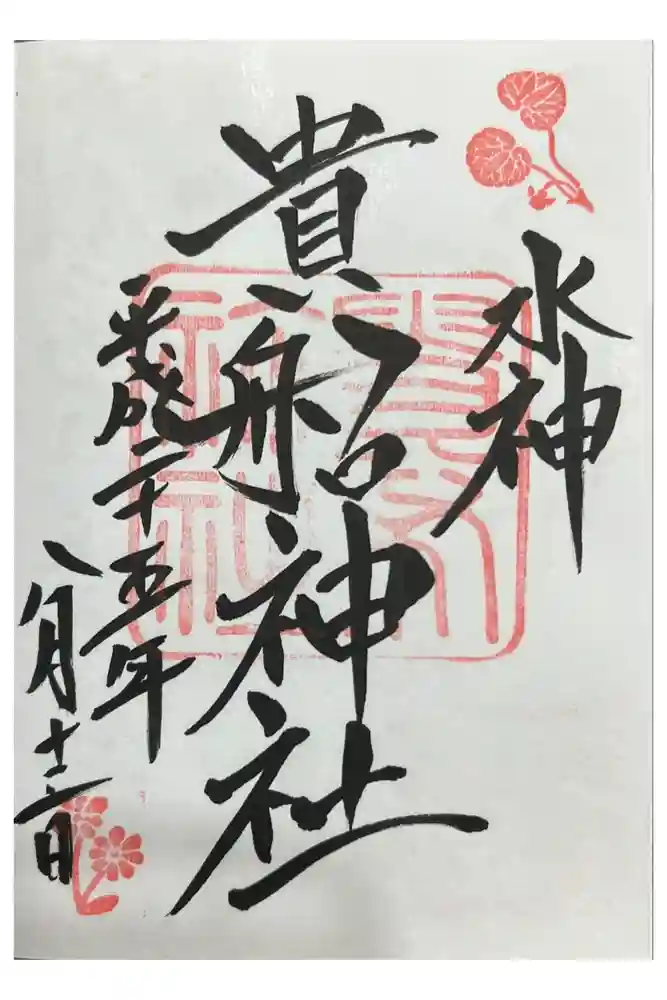 水神
貴船神社
平成二十五年
八月十二日